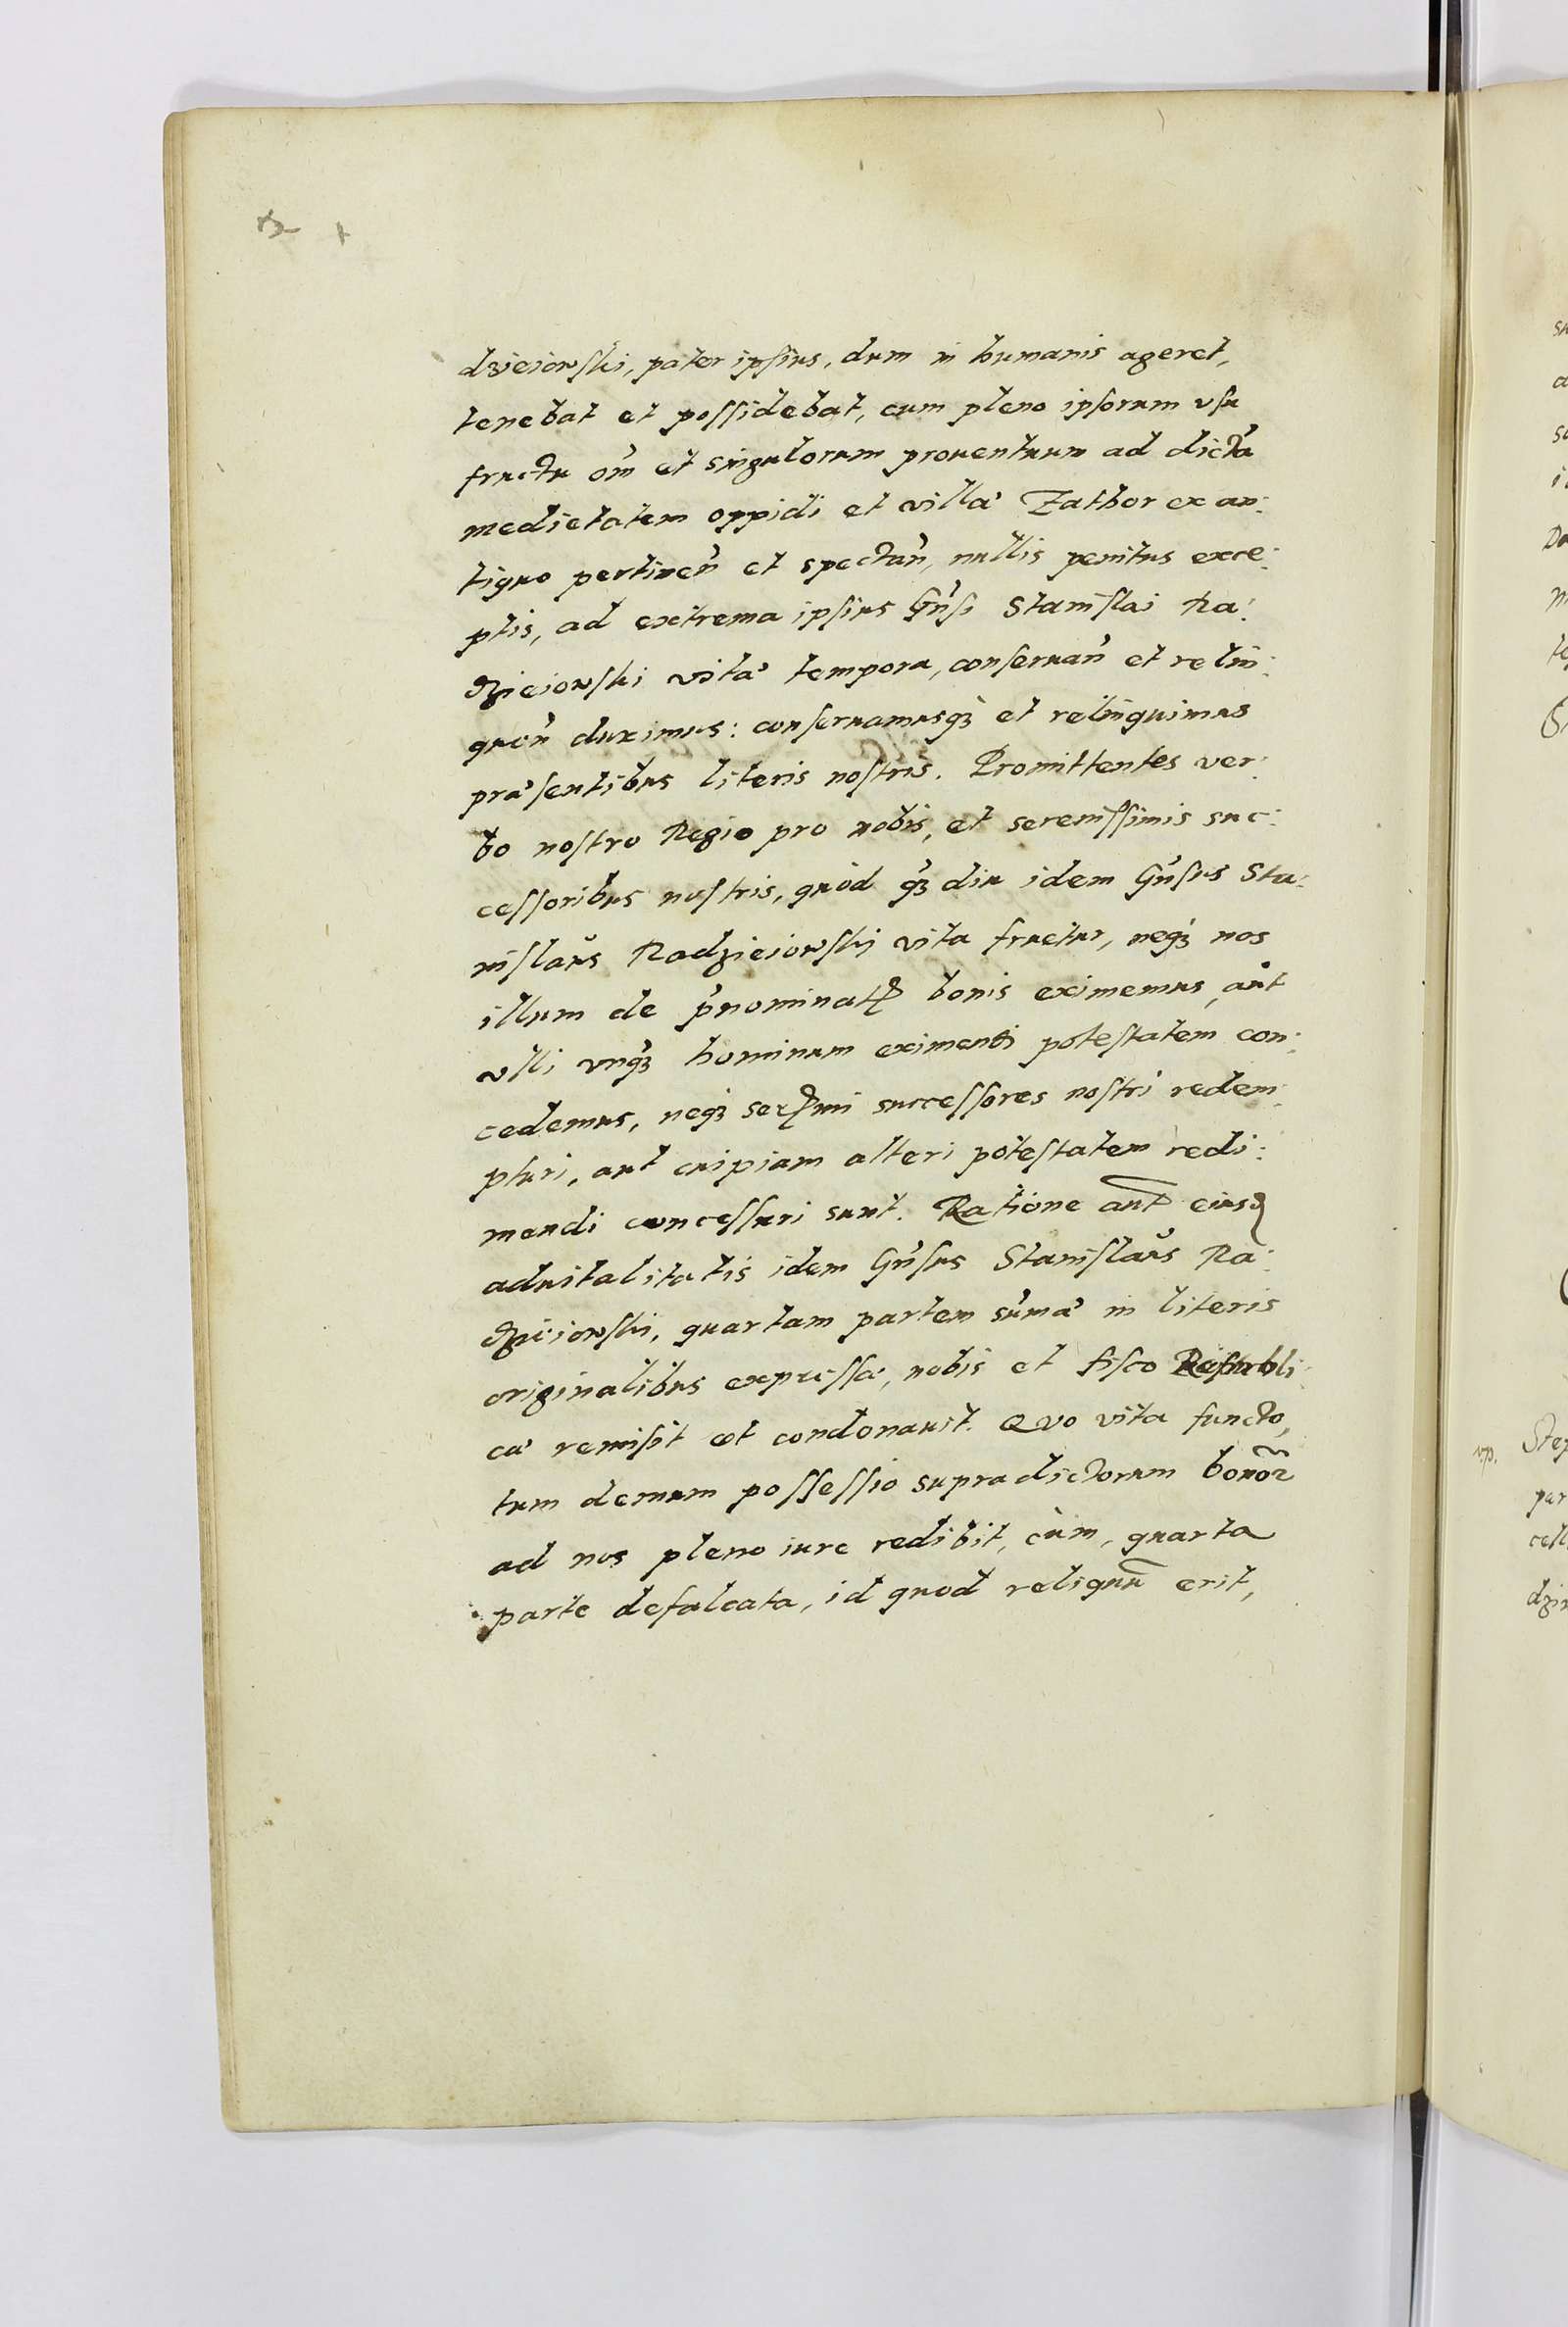 dzieiowſki, pater ipſius, dum in humanis ageret,
tenebat et poſſidebat, cum pleno ipſorum vſu
fructu om̃ et singulorum prouentuum ad dictã
medietatem oppidi et villæ Zathor ex an:
tiquo pertineñ et spectañ, nullis penitus exce:
ptis, ad extrema ipſius Gñſi Staniſlai Ra:
dzieiowſki vitæ tempora, conſeruañ et relin:
queñ duximus: conſeruamusqȝ et relinquimus
præſentibus literis noſtris. Promittentes ver:
bo noſtro Regio pro nobis, et sereniſſimis suc:
ceſſoribus noſtris, quòd qȝ diu idem Gñſus Sta:
niſlaus Radzieiowſkj vita fruetur, neqȝ nos
illum de p̃nominatꝭ bonis eximemus, aut
vlli vnqȝ hominum eximendi poteſtatem con:
cedemus, neqȝ serꝭmi succeſſores noſtri redem:
pturi, aut cuipiam alteri poteſtatem redi:
mendi conceſſuri sunt. Ratione aut̃ eiusd
aduitalitatis idem Gñſus Staniſlaus Ra:
dzieiowſki, quartam partem sum̃æ in literis
originalibus expreſſæ, nobis et fiſco Reipubli:
cæ remiſit et condonauit. Quo vita functo,
tum demum poſſeſſio supradictorum bonoꝝ
ad nos pleno iure redibit, cùm, quarta
parte defalcata, id quod reliquũ erit,